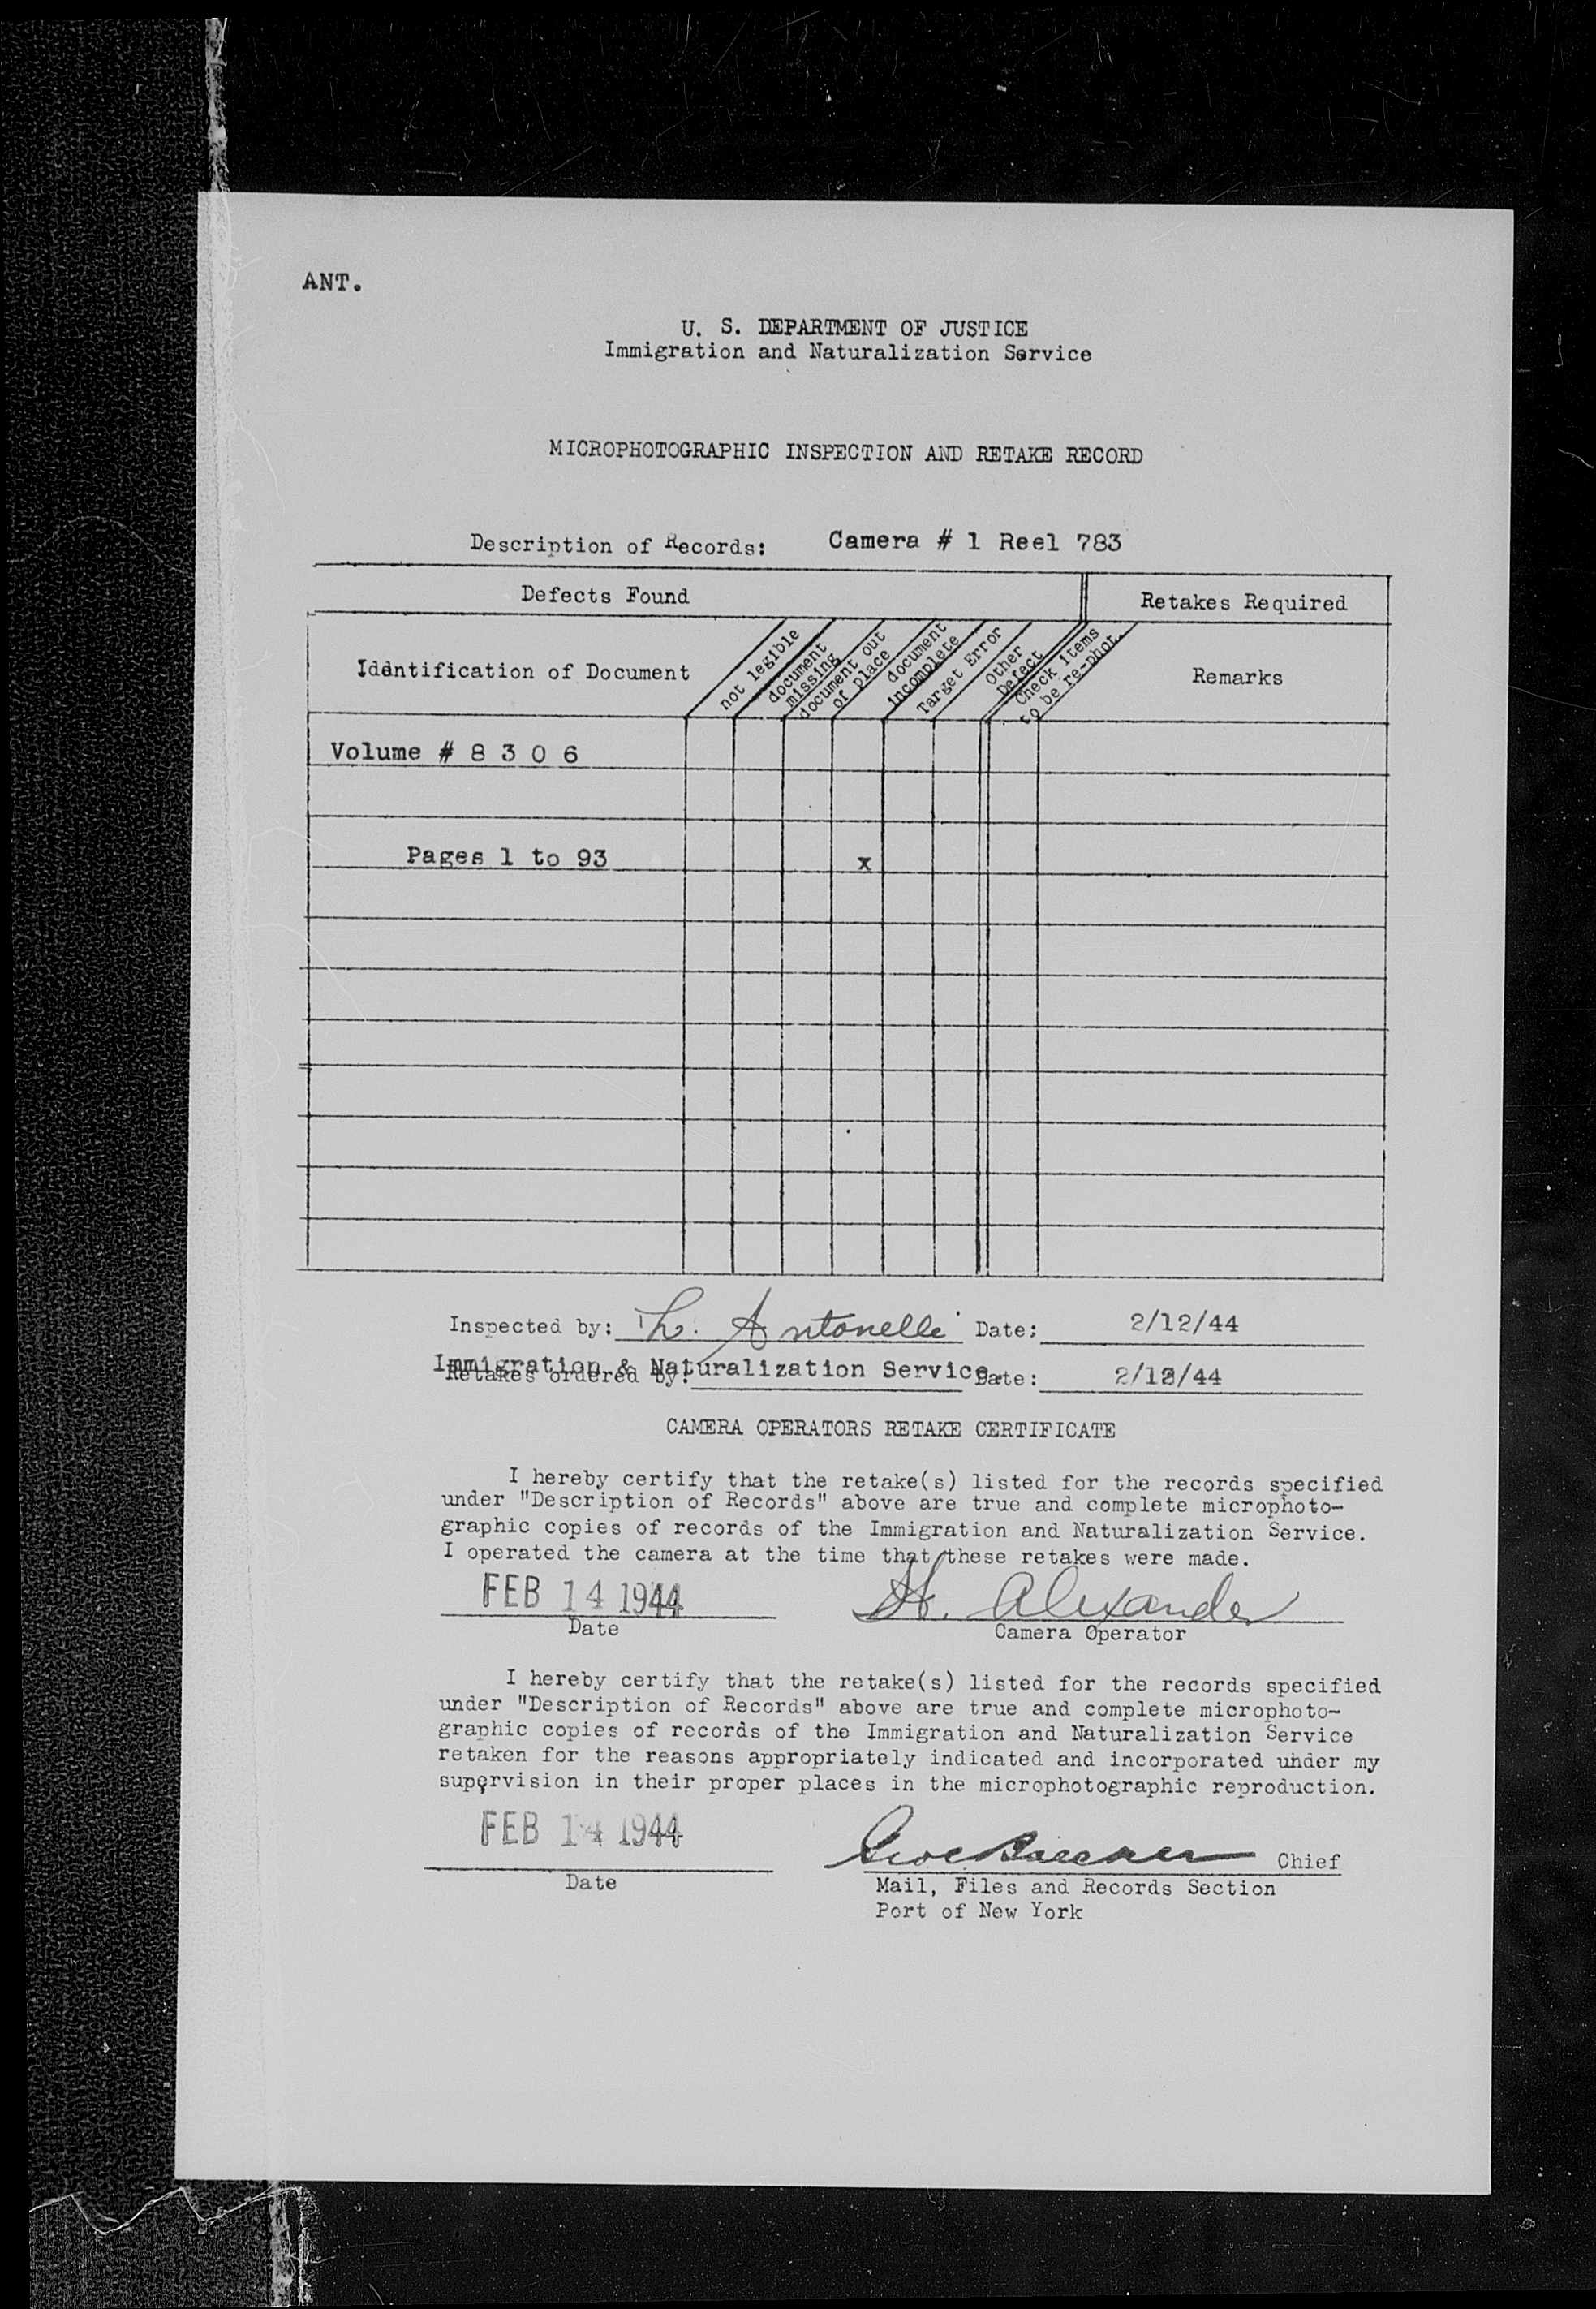 ANT.
U. S. DEPARTMENT OF JUSTICE
Immigration and Naturalization Service
MICROPHOTOGRAPHIC INSPECTION AND RETAKE RECORD
Description of Records: Camera # 1 Reel 783
Defects Found
Retakes Required
Identification of Document
not legible
document
missing
document out
of place
document
incomplete
Target Error
Other
Defect
Check items
to be re-phot.
Remarks
Volume # 8 3 0 6
Pages 1 to 93 x
Inspected by: L. Antonelli Date: 2/12/44
Immigration & Naturalization Service
Retakes ordered by: Date: 2/12/44
CAMERA OPERATORS RETAKE CERTIFICATE
I hereby certify that the retake(s) listed for the records specified
under "Description of Records" above are true and complete microphoto-
graphic copies of records of the Immigration and Naturalization Service.
I operated the camera at the time that these retakes were made.
FEB 14 1944 H. Alexander
Date Camera Operator
I hereby certify that the retake(s) listed for the records specified
under "Description of Records" above are true and complete microphoto-
graphic copies of records of the Immigration and Naturalization Service
retaken for the reasons appropriately indicated and incorporated under my
supervision in their proper places in the microphotographic reproduction.
FEB 14 1944
Chief
Date
Mail, Files and Records Section
Port of New York